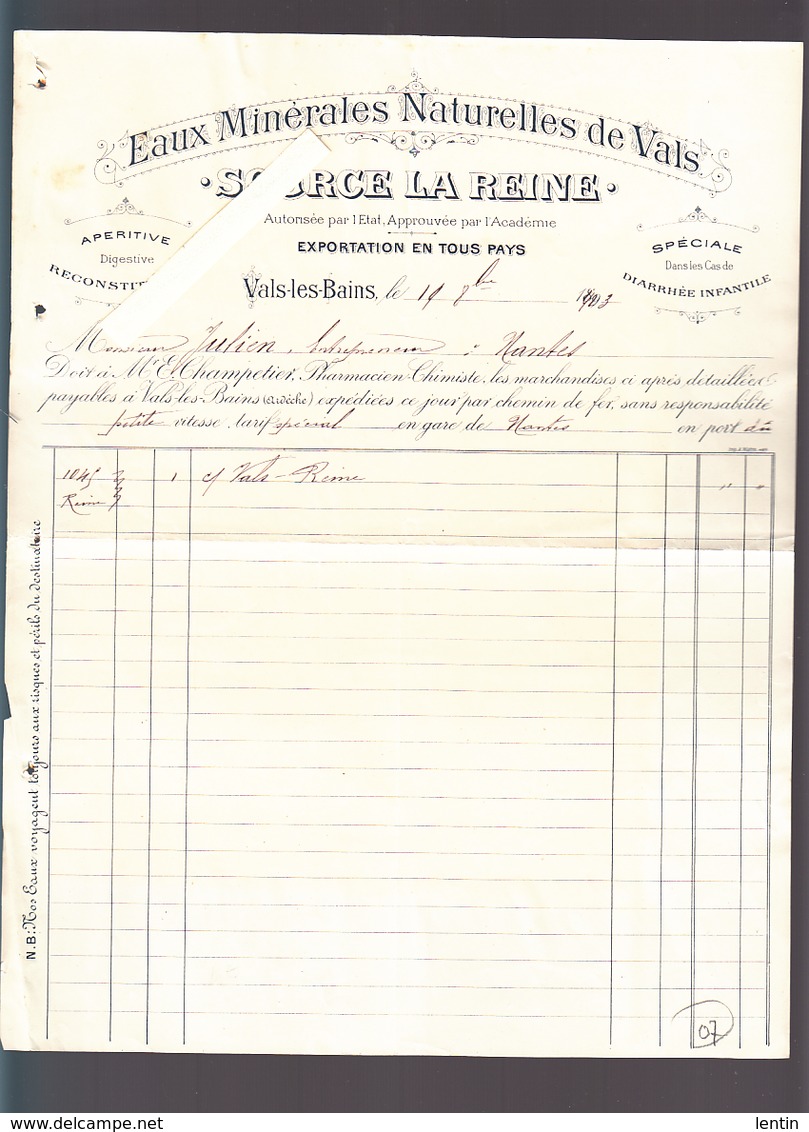 Eaux Minérales Naturelles de Vals
SOURCE LA REINE
Autorisée par l'Etat, Approuvée par l'Académie
EXPORTATION EN TOUS PAYS
APERITIVE
Digestive
RECONSTIT
SPÉCIALE
Dans les Cas de
DIARRHÉE INFANTILE
Vals-les-Bains, le 19 8bre 1903
Monsieur Julien, Entrepreneur à Nantes
Doit à Mr E. Champetier, Pharmacien-Chimiste, les marchandises ci après détaillées
payables à Vals-les-Bains (Ardèche) expédiées ce jour par chemin de fer, sans responsabilité
petite vitesse, tarif spécial en gare de Nantes en port dû
1045 1 c/ Vals-Reine " "
Reine
N.B: Nos Eaux voyagent toujours aux risques et périls du destinataire
07
delcampe.net
lentin